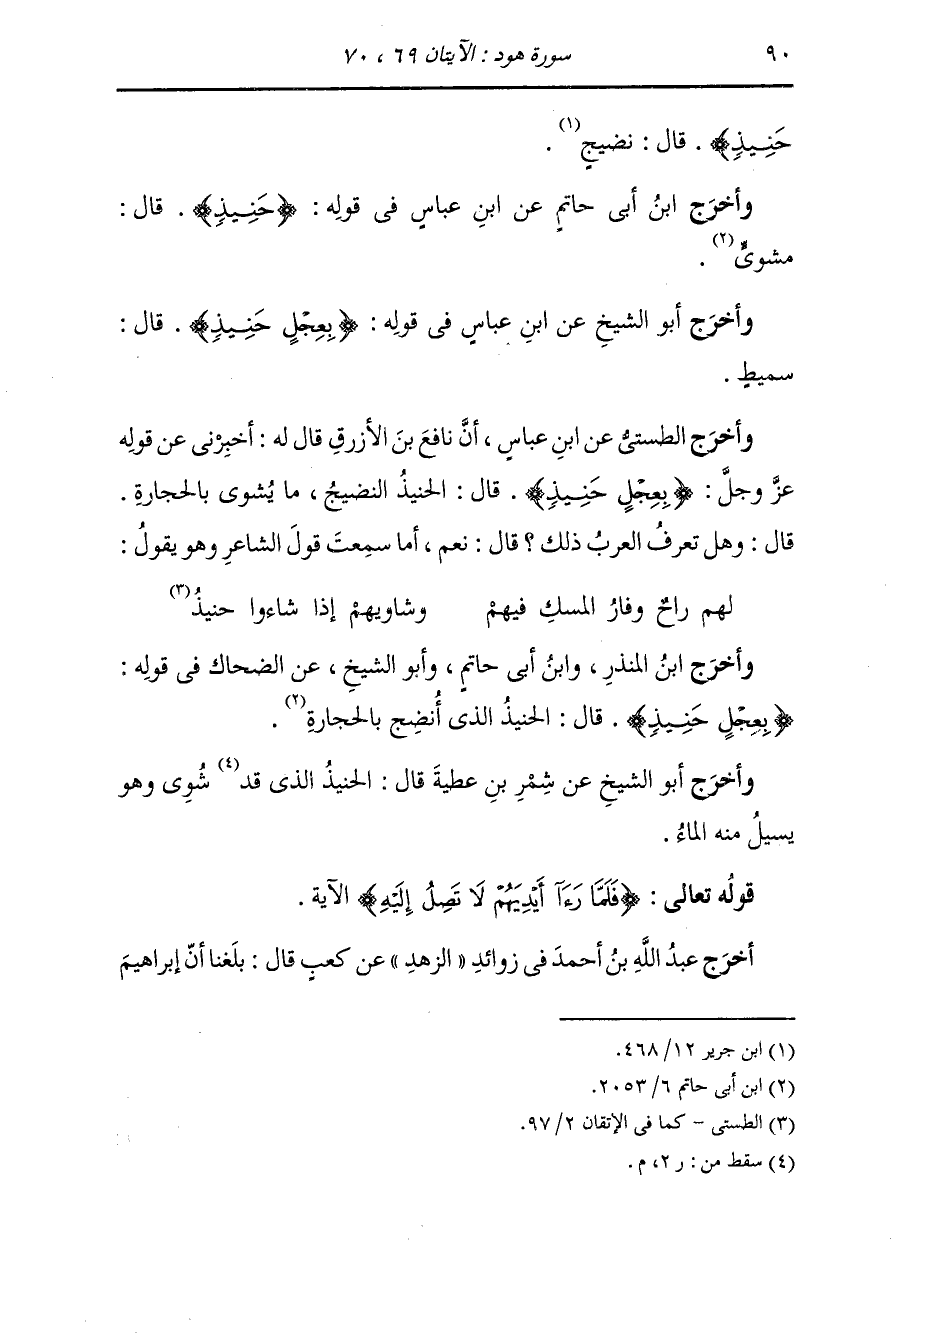 ٩٠ سورة هود : الآيتان ٦٩ ، ٧٠
حَنِيذٍ﴾ . قال : نضيجٍ(١) .
وأخرَج ابنُ أبى حاتمٍ عن ابنِ عباسٍ فى قولِه : ﴿حَنِيذٍ﴾ . قال :
مشوىٌّ(٢) .
وأخرَج أبو الشيخِ عن ابنِ عباسٍ فى قولِه : ﴿بِعِجْلٍ حَنِيذٍ﴾ . قال :
سميطٍ .
وأخرَج الطستىُّ عن ابنِ عباسٍ ، أنَّ نافعَ بنَ الأزرقِ قال له : أخبِرْنى عن قولِه
عزَّ وجلَّ : ﴿بِعِجْلٍ حَنِيذٍ﴾ . قال : الحنيذُ النضيجُ ، ما يُشوى بالحجارةِ .
قال : وهل تعرفُ العربُ ذلك ؟ قال : نعم ، أما سمِعتَ قولَ الشاعرِ وهو يقولُ :
لهم راحٌ وفارُ المسكِ فيهمْ وشاويهمْ إذا شاءوا حنيذُ(٣)
وأخرَج ابنُ المنذرِ ، وابنُ أبى حاتمٍ ، وأبو الشيخِ ، عن الضحاك فى قولِه :
﴿بِعِجْلٍ حَنِيذٍ﴾ . قال : الحنيذُ الذى أُنضِج بالحجارةِ(٢) .
وأخرَج أبو الشيخِ عن شِمْرِ بنِ عطيةَ قال : الحنيذُ الذى قد(٤) شُوِى وهو
يسيلُ منه الماءُ .
قولُه تعالى : ﴿فَلَمَّا رَءَآ أَيْدِيَهُمْ لَا تَصِلُ إِلَيْهِ﴾ الآية .
أخرَج عبدُ اللَّهِ بنُ أحمدَ فى زوائدِ « الزهدِ » عن كعبٍ قال : بلَغنا أنّ إبراهيمَ
(١) ابن جرير ١٢/ ٤٦٨.
(٢) ابن أبى حاتم ٦/ ٢٠٥٣.
(٣) الطستى – كما فى الإتقان ٢/ ٩٧.
(٤) سقط من : ر ٢، م .